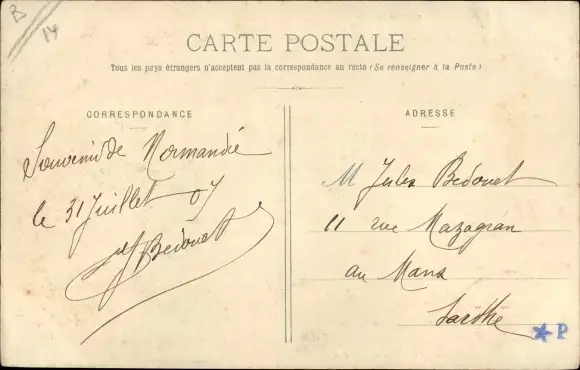 B
14
CARTE POSTALE
Tous les pays étrangers n'acceptent pas la correspondance au recto (Se renseigner à la Poste)
CORRESPONDANCE
Souvenir de Normandie
le 31 Juillet 07
Bedouet
ADRESSE
M Jules Bedouet
11 rue Mazagran
au Mans
Sarthe
P